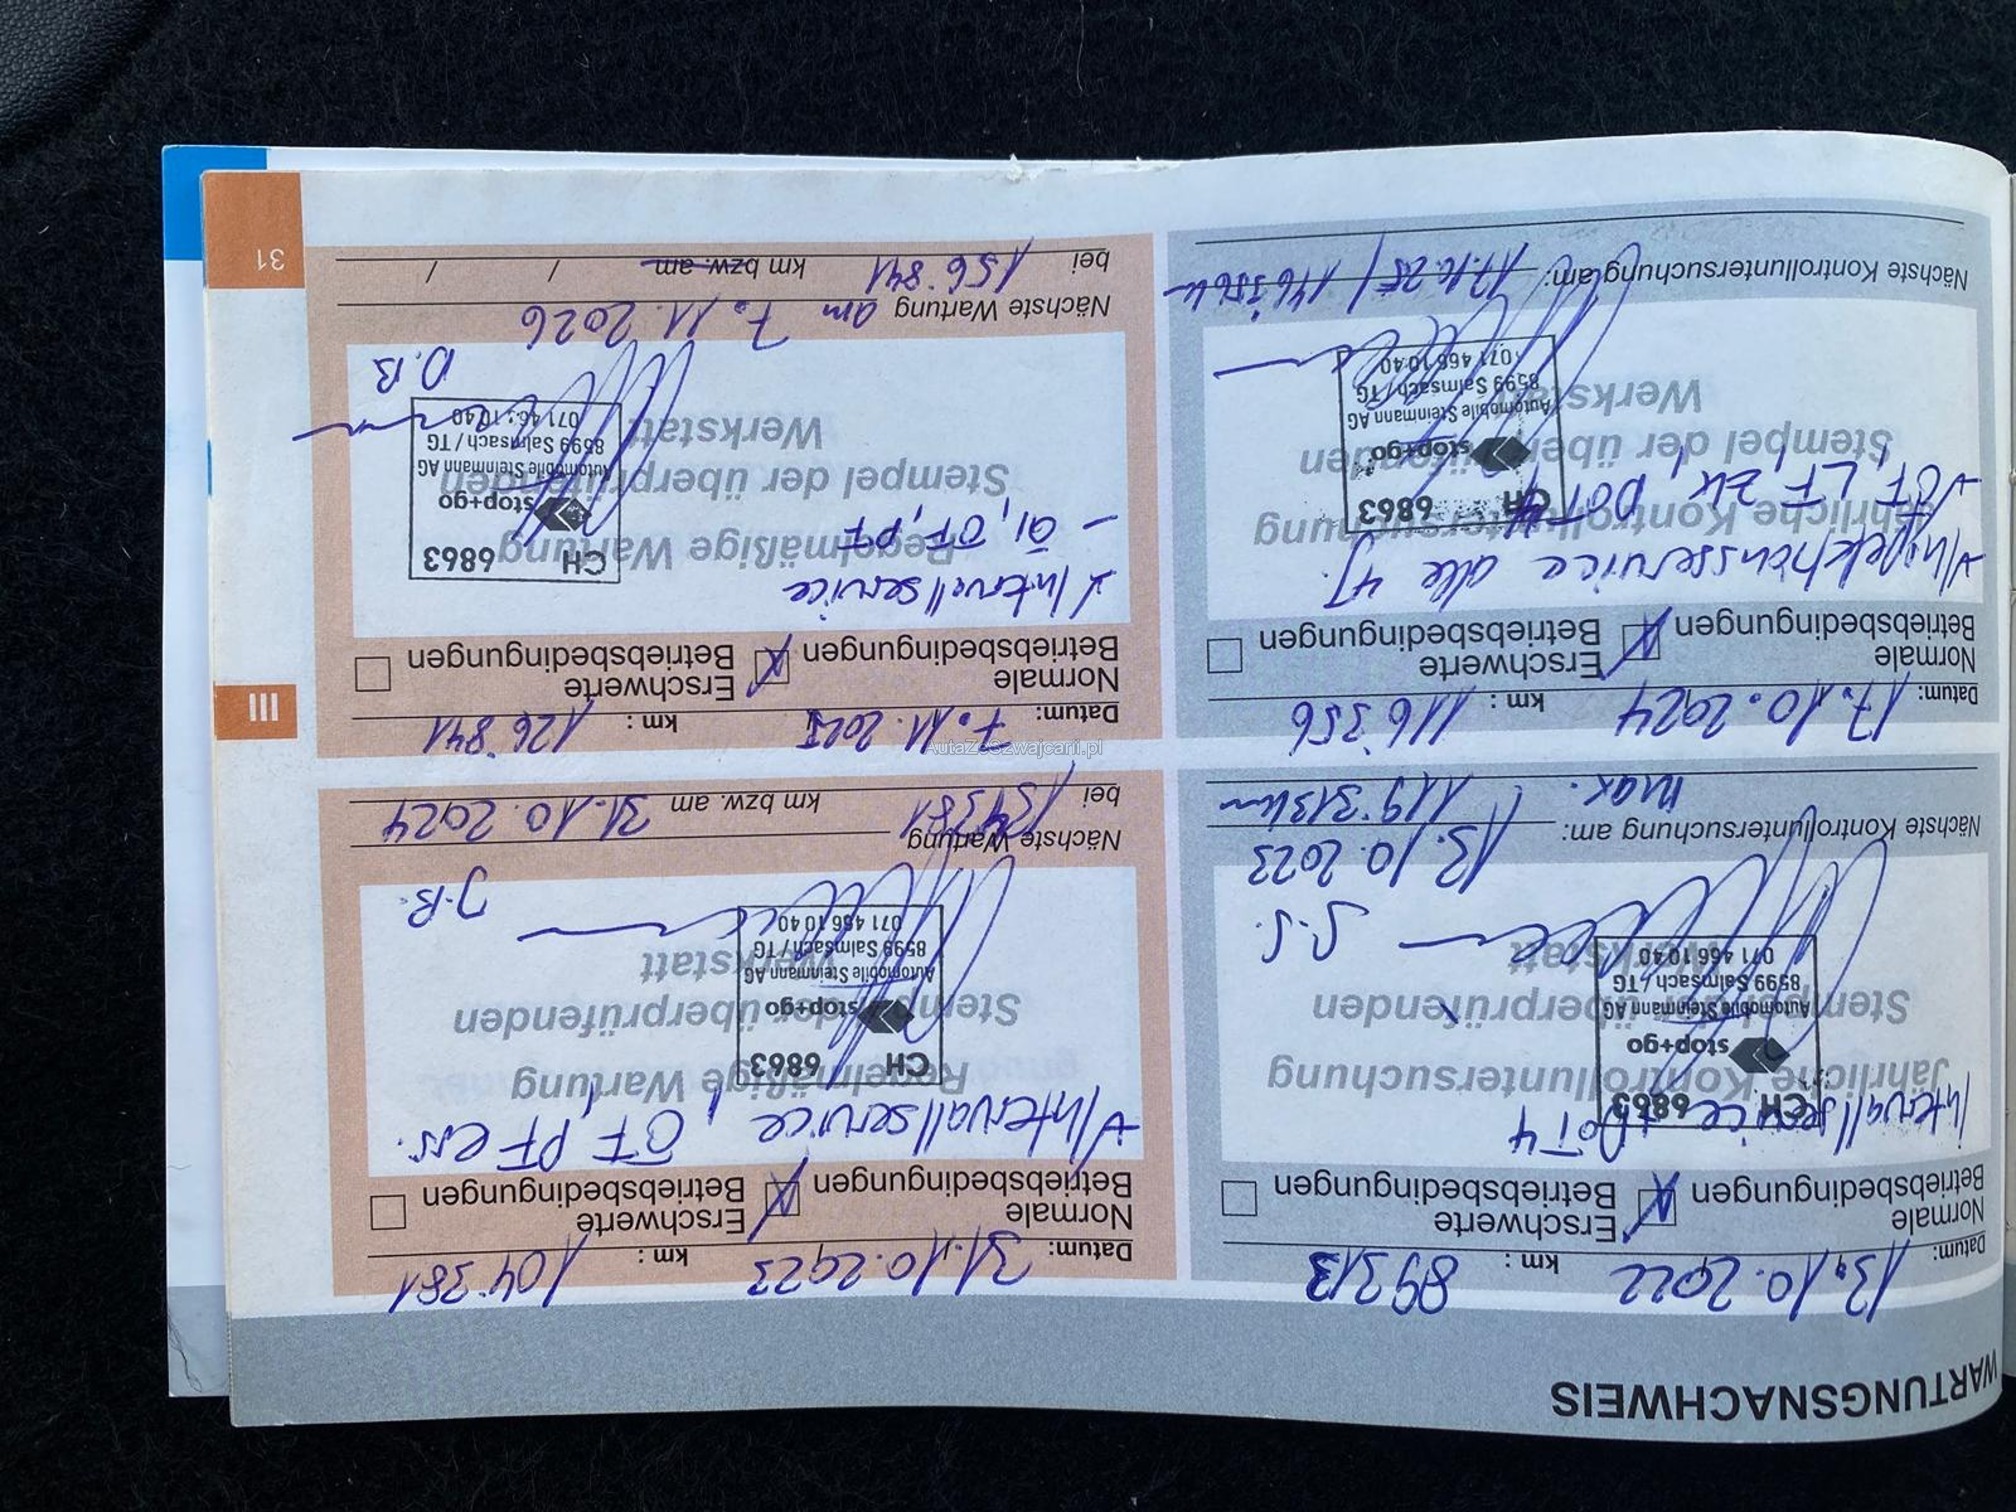 WARTUNGSNACHWEIS
Datum: 13.10.2022 km : 89313
Normale Betriebsbedingungen
Erschwerte Betriebsbedingungen
Intervallservice + DOT4
Jährliche Kontrolluntersuchung
Stempel der überprüfenden
Werkstatt
CH 6863
stop+go
Automobile Steinmann AG
8599 Salmsach / TG
071 466 10 40
S.S.
Nächste Kontrolluntersuchung am: 13.10.2023
max. 119'313km
Datum: 31.10.2023 km : 104'381
Normale Betriebsbedingungen
Erschwerte Betriebsbedingungen
Intervallservice, ÖF, PF ers.
Regelmäßige Wartung
Stempel der überprüfenden
Werkstatt
CH 6863
stop+go
Automobile Steinmann AG
8599 Salmsach / TG
071 466 10 40
J.B.
Nächste Wartung
bei 134'381 km bzw. am 31.10.2024
Datum: 17.10.2024 km : 116'356
Normale Betriebsbedingungen
Erschwerte Betriebsbedingungen
Inspektionsservice alle 4J.
ÖF, LF, ZK, DOT 4
Jährliche Kontrolluntersuchung
Stempel der überprüfenden
Werkstatt
CH 6863
stop+go
Automobile Steinmann AG
8599 Salmsach / TG
071 466 10 40
Nächste Kontrolluntersuchung am: 17.10.25 / 146'356
Datum: 7.11.2025 km : 126'841
Normale Betriebsbedingungen
Erschwerte Betriebsbedingungen
Intervallservice
- Öl, ÖF, PF
Regelmäßige Wartung
Stempel der überprüfenden
Werkstatt
CH 6863
stop+go
Automobile Steinmann AG
8599 Salmsach / TG
071 466 10 40
D.B
Nächste Wartung am 7.11.2026
bei 156'841 km bzw. am / /
III
31
AutaZeSzwajcarii.pl